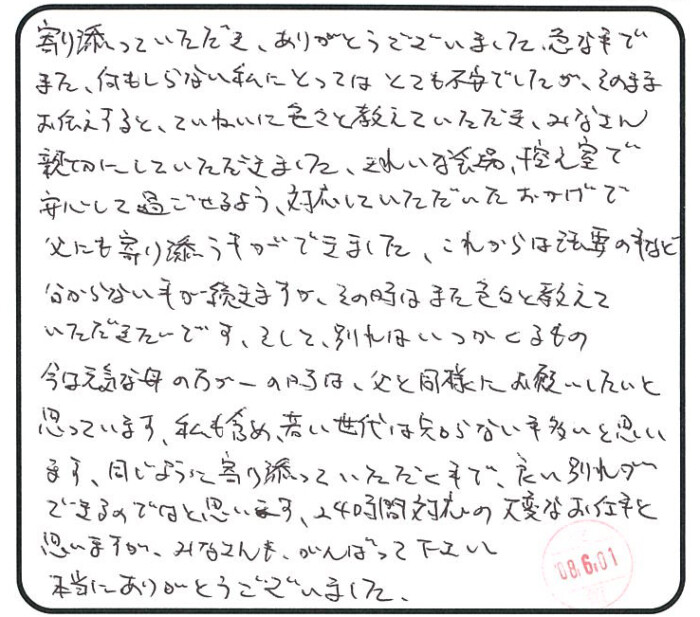 寄り添っていただき、ありがとうございました。急な事で
また、何もしらない私にとってはとても不安でしたが、そのまま
お伝えすると、ていねいに色々と教えていただき、みなさん
親切にしていただきました。きれいな会場、控え室で
安心して過ごせるよう、対応していただいたおかげで
父にも寄り添う事ができました。これからは法要の事など
分からない事が続きますが、その時はまた色々と教えて
いただきたいです。そして、別れはいつかくるもの
今は元気な母の万が一の時は、父と同様にお願いしたいと
思っています。私も含め、若い世代は分からない事多いと思い
ます。同じように寄り添っていただく事で、良い別れが
できるのではと思います。24時間対応の大変なお仕事と
思いますが、みなさんも、がんばって下さい
本当にありがとうございました。
08.6.01